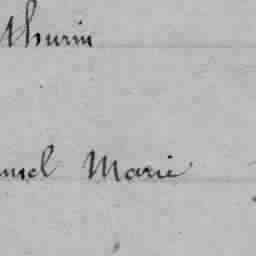 thurin
uel Marie